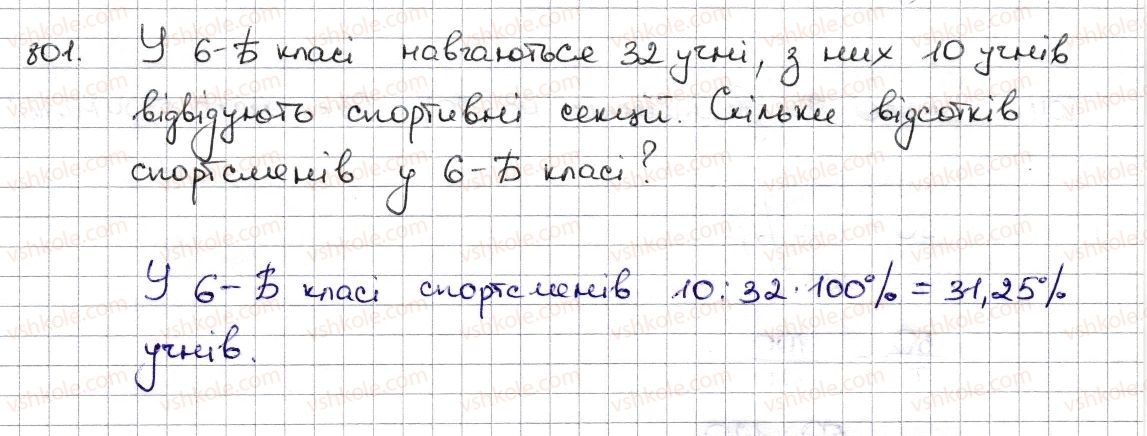 801. У 6-Б класі навчаються 32 учні, з них 10 учнів
відвідують спортивні секції. Скільки відсотків
спортсменів у 6-Б класі?
У 6-Б класі спортсменів 10:32·100%=31,25%
учнів.